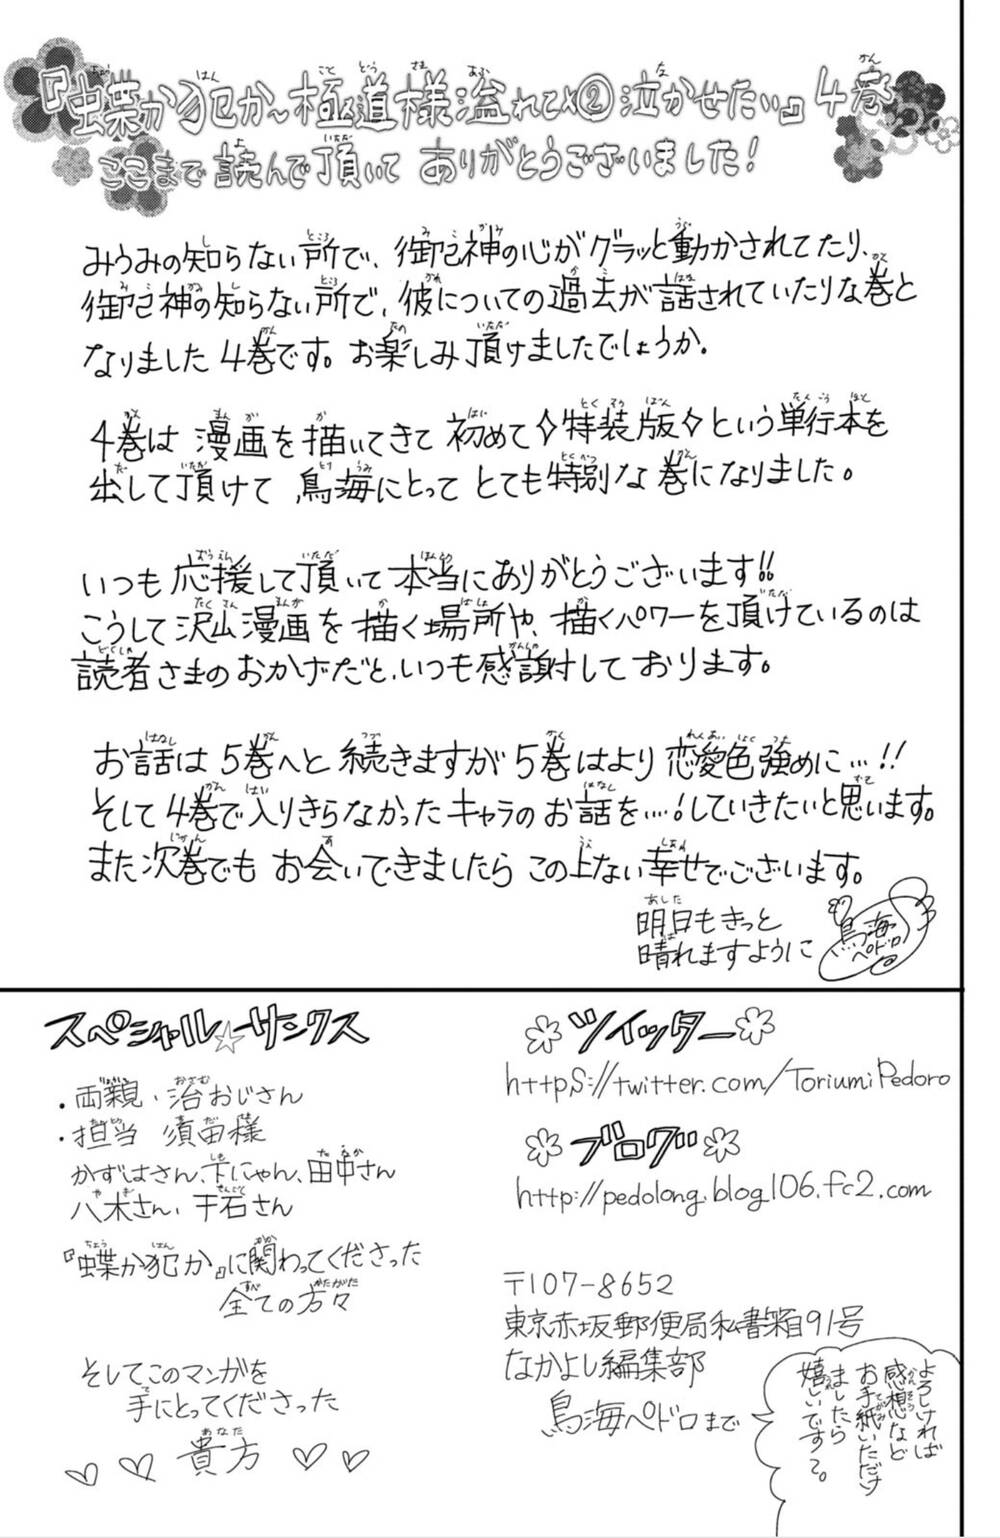 『蝶か犯か〜極道様溢れて×②泣かせたい』4巻
ここまで読んで頂いて ありがとうございました!
みうみの知らない所で、御己神の心がグラッと動かされてたり、
御己神の知らない所で、彼についての過去が話されていたりな巻と
なりました4巻です。お楽しみ頂けましたでしょうか。
4巻は 漫画を描いてきて 初めて✧特装版✧という単行本を
出して頂けて、鳥海にとって とても特別な巻になりました。
いつも応援して頂いて本当にありがとうございます!!
こうして沢山漫画を描く場所や、描くパワーを頂けているのは
読者さまのおかげだと、いつも感謝しております。
お話は5巻へと続きますが5巻はより恋愛色強めに…!!
そして4巻で入りきらなかったキャラのお話を…!していきたいと思います。
また次巻でも お会いできましたら この上ない幸せでございます。
明日もきっと
晴れますように
鳥海
ペドロ
スペシャル☆サンクス
・両親・治おじさん
・担当 須田様
かずはさん、下にゃん、田中さん
八木さん、千石さん
『蝶か犯か』に関わってくださった
全ての方々
そしてこのマンガを
手にとってくださった
貴方
ツイッター
https://twitter.com/ToriumiPedoro
ブログ
http://pedolong.blog106.fc2.com
〒107-8652
東京赤坂郵便局私書箱91号
なかよし編集部
鳥海ペドロまで
よろしければ
感想など
お手紙いただけ
ましたら
嬉しいです。